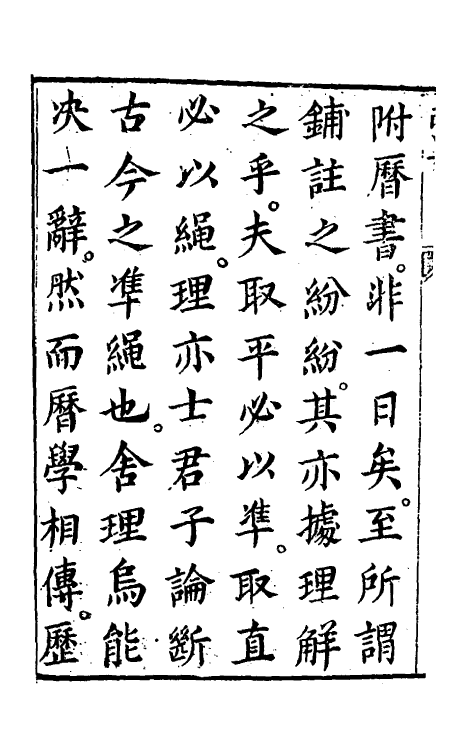 附曆書。非一日矣。至所謂
鋪註之紛紛。其亦據理解
之乎。夫取平必以準。取直
必以繩。理亦士君子論斷
古今之準繩也。舍理烏能
决一辭。然而曆學相傳。歷